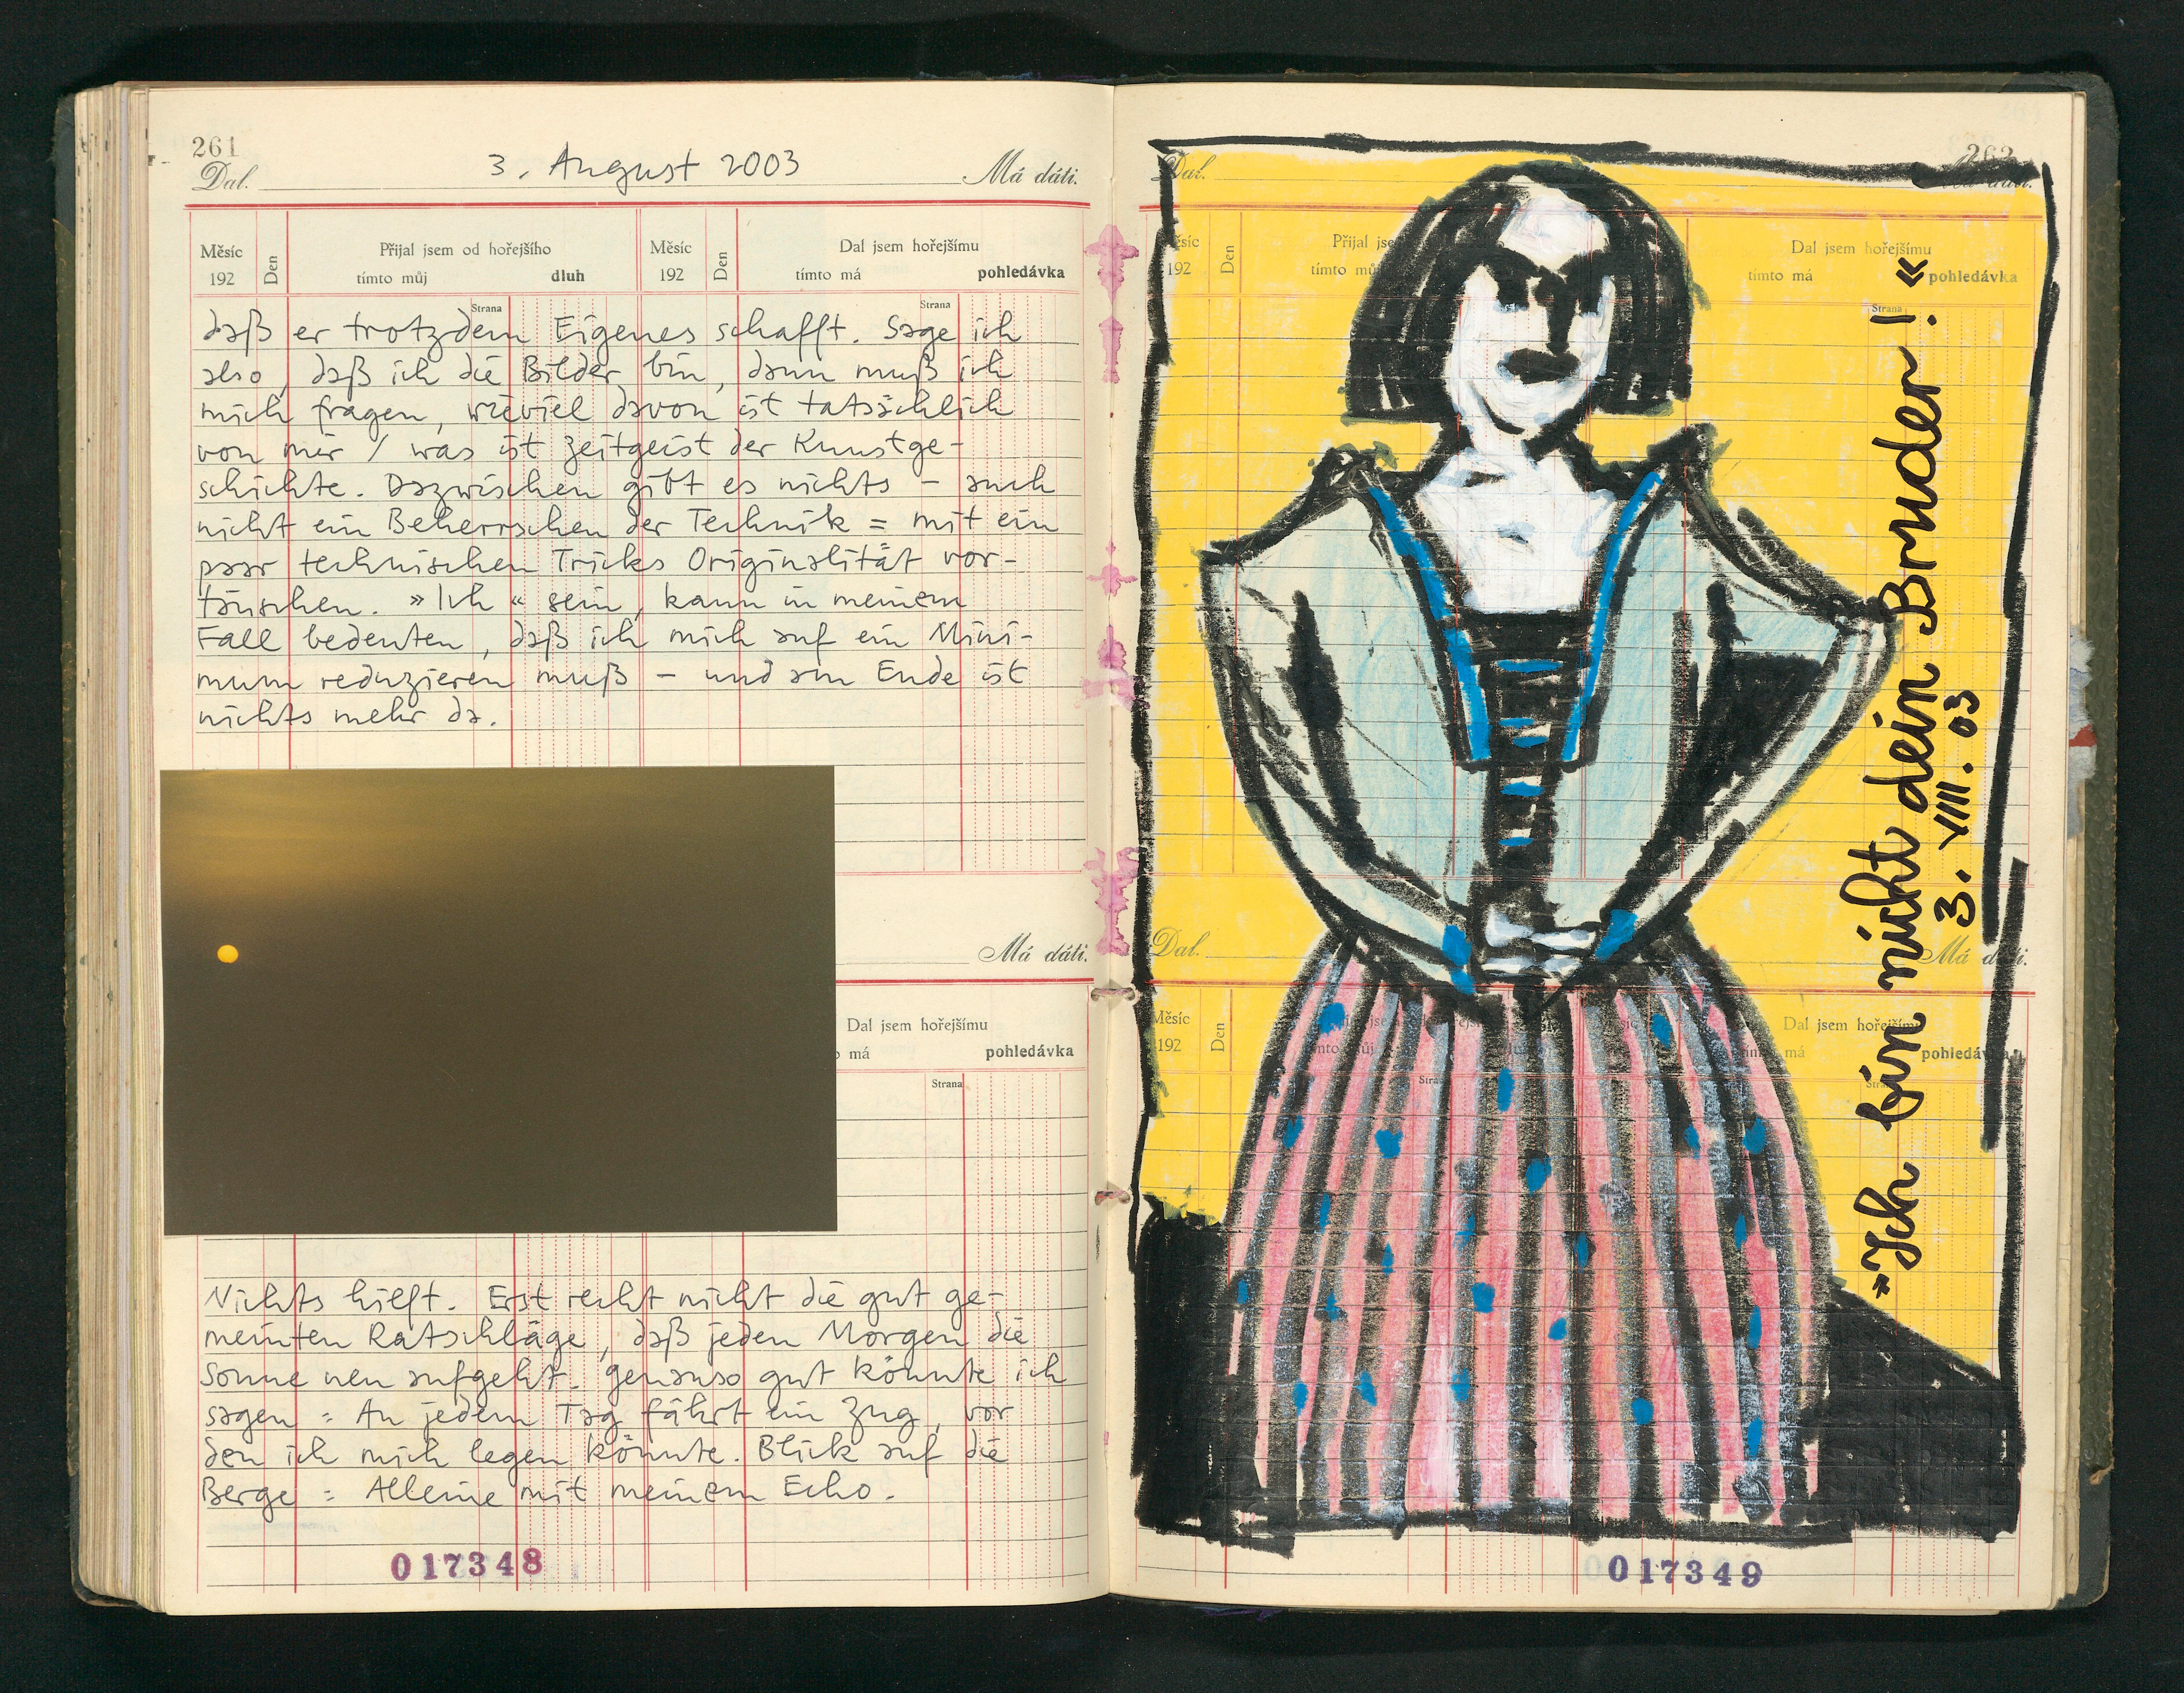 261
3. August 2003
Dal. Má dáti.
Měsíc 192 Den Přijal jsem od hořejšího tímto můj dluh Měsíc 192 Den Dal jsem hořejšímu tímto má pohledávka
Strana Strana
daß er trotzdem Eigenes schafft. Sage ich
also, daß ich die Bilder bin, dann muß ich
mich fragen, wieviel davon ist tatsächlich
von mir / was ist Zeitgeist der Kunstge-
schichte. Dazwischen gibt es nichts – auch
nicht ein Beherrschen der Technik = mit ein
paar technischen Tricks Originalität vor-
täuschen. »Ich« sein, kann in meinem
Fall bedeuten, daß ich mich auf ein Mini-
mum reduzieren muß – und am Ende ist
nichts mehr da.
Má dáti.
Dal jsem hořejšímu
má pohledávka
Strana
Nichts hilft. Erst recht nicht die gut ge-
meinten Ratschläge, daß jeden Morgen die
Sonne neu aufgeht. Genauso gut könnte ich
sagen = An jedem Tag fährt ein Zug, vor
den ich mich legen könnte. Blick auf die
Berge = Alleine mit meinem Echo.
017348
262
Dal. dáti.
Měsíc 192 Den Přijal jsem tímto můj Dal jsem hořejšímu tímto má pohledávka
Strana
»Ich bin nicht dein Bruder!«
3. VIII. 03
Dal. Má dáti.
Měsíc 192 Den Dal jsem hořejšímu má pohledávka
017349